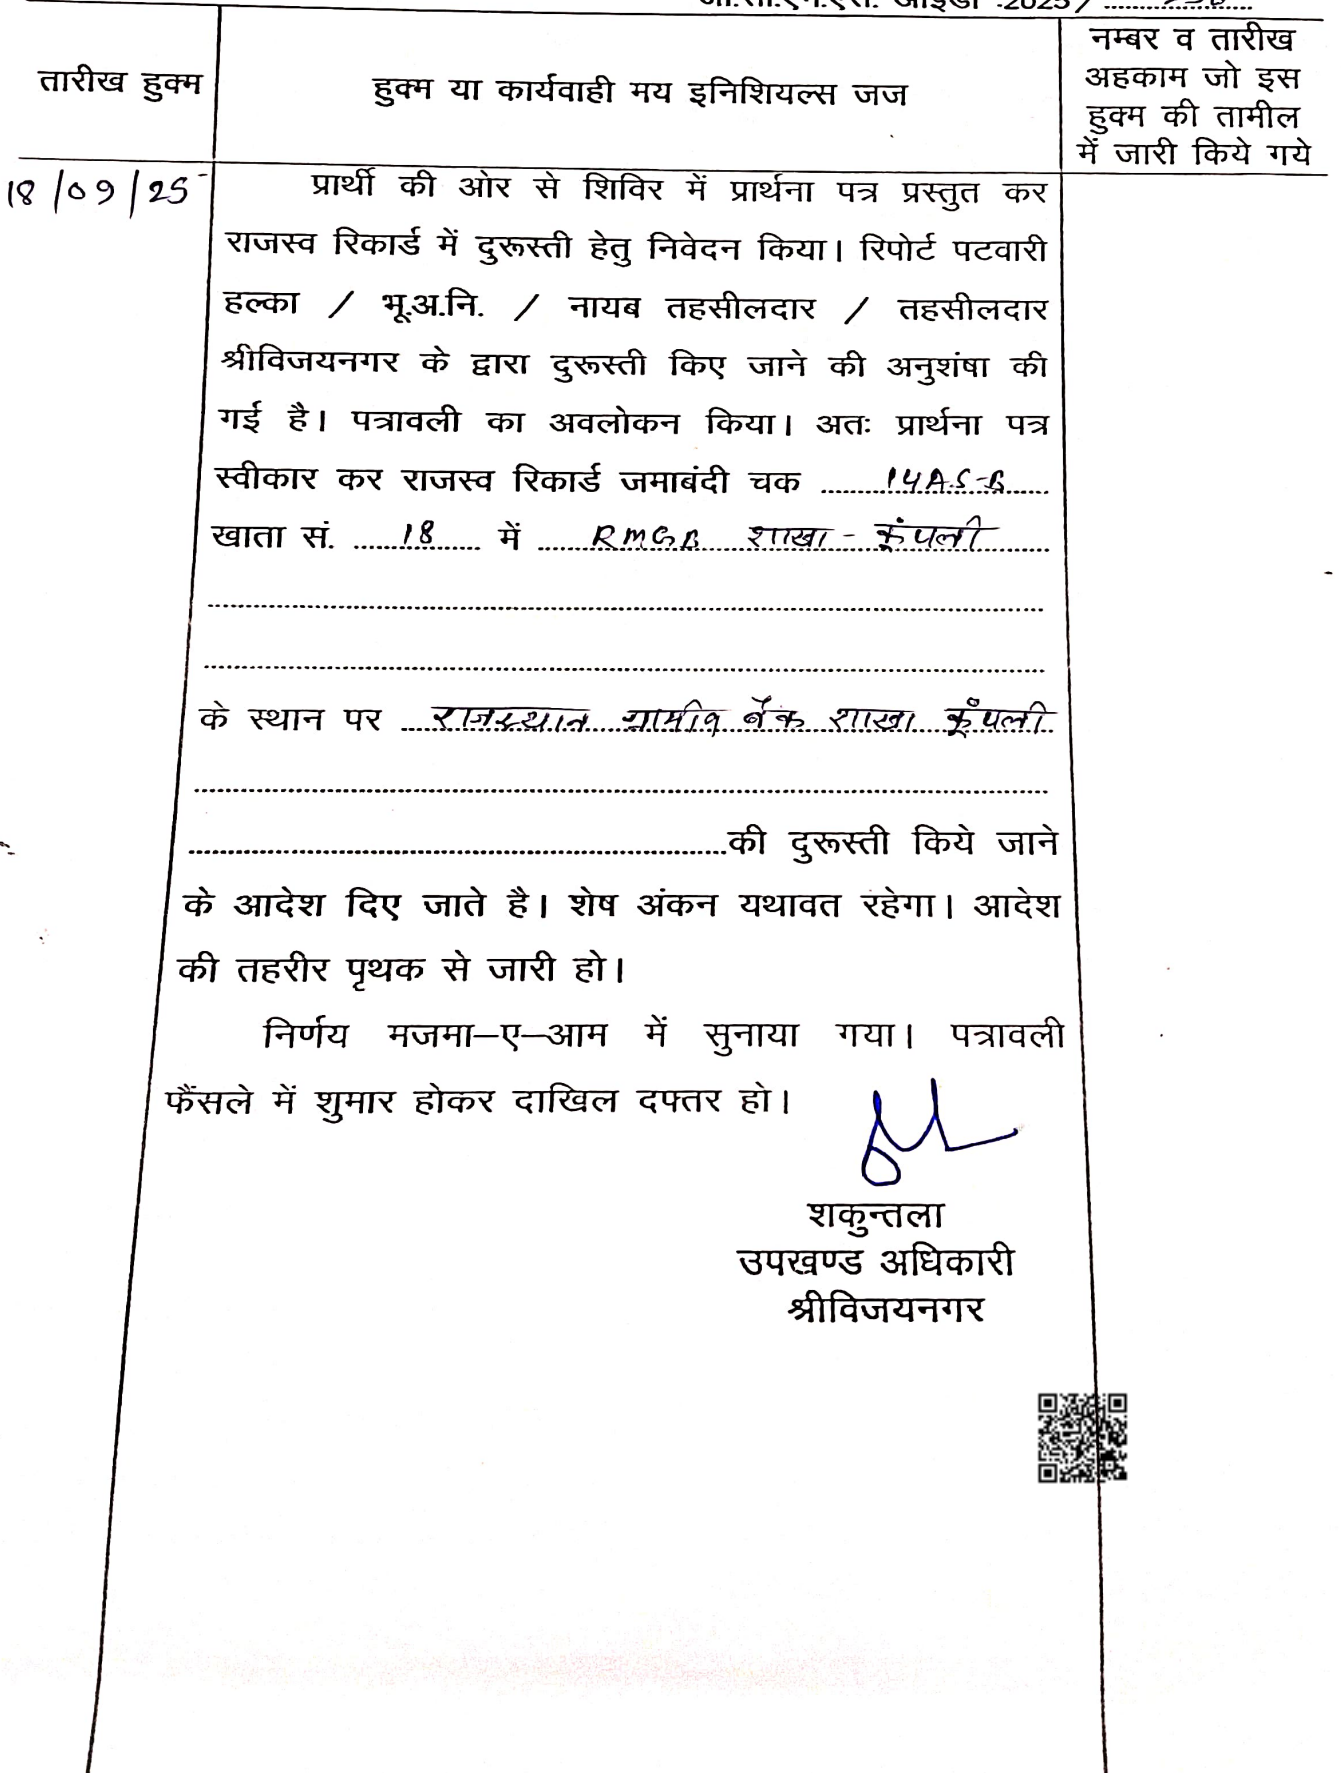 2025/
तारीख हुक्म
हुक्म या कार्यवाही मय इनिशियल्स जज
नम्बर व तारीख
अहकाम जो इस
हुक्म की तामील
में जारी किये गये
18/09/25
प्रार्थी की ओर से शिविर में प्रार्थना पत्र प्रस्तुत कर
राजस्व रिकार्ड में दुरूस्ती हेतु निवेदन किया। रिपोर्ट पटवारी
हल्का / भू.अ.नि. / नायब तहसीलदार / तहसीलदार
श्रीविजयनगर के द्वारा दुरूस्ती किए जाने की अनुशंषा की
गई है। पत्रावली का अवलोकन किया। अतः प्रार्थना पत्र
स्वीकार कर राजस्व रिकार्ड जमाबंदी चक 14A.S-B
खाता सं. 18 में RMGB शाखा - कूंपली
के स्थान पर राजस्थान ग्रामीण बैंक शाखा कूंपली
की दुरूस्ती किये जाने
के आदेश दिए जाते है। शेष अंकन यथावत रहेगा। आदेश
की तहरीर पृथक से जारी हो।
निर्णय मजमा–ए–आम में सुनाया गया। पत्रावली
फैंसले में शुमार होकर दाखिल दफ्तर हो।
शकुन्तला
उपखण्ड अधिकारी
श्रीविजयनगर